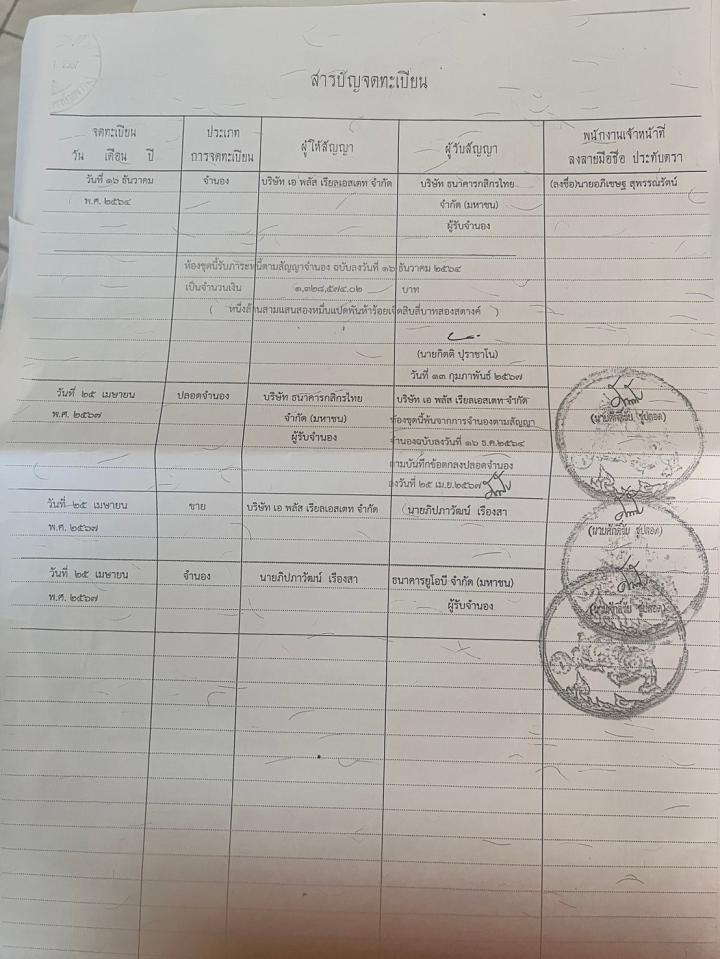 . 2567
สารบัญจดทะเบียน
จดทะเบียน
วัน เดือน ปี
ประเภท
การจดทะเบียน
ผู้ให้สัญญา
ผู้รับสัญญา
พนักงานเจ้าหน้าที่
ลงลายมือชื่อ ประทับตรา
วันที่ ๑๖ ธันวาคม
พ.ศ. ๒๕๖๔
จำนอง
บริษัท เอ พลัส เรียลเอสเตท จำกัด
บริษัท ธนาคารกสิกรไทย
จำกัด (มหาชน)
ผู้รับจำนอง
(ลงชื่อ)นายอภิเชษฐ สุพรรณรัตน์
ห้องชุดนี้รับภาระหนี้ตามสัญญาจำนอง ฉบับลงวันที่ ๑๖ ธันวาคม ๒๕๖๔
เป็นจำนวนเงิน ๑,๓๒๘,๕๗๔.๐๒ บาท
( หนึ่งล้านสามแสนสองหมื่นแปดพันห้าร้อยเจ็ดสิบสี่บาทสองสตางค์ )
(นายกิตติ ปุราชาโน)
วันที่ ๑๓ กุมภาพันธ์ ๒๕๖๗
วันที่ ๒๕ เมษายน
พ.ศ. ๒๕๖๗
ปลอดจำนอง
บริษัท ธนาคารกสิกรไทย
จำกัด (มหาชน)
ผู้รับจำนอง
บริษัท เอ พลัส เรียลเอสเตท จำกัด
ห้องชุดนี้พ้นจากการจำนองตามสัญญา
จำนองฉบับลงวันที่ ๑๖ ธ.ค.๒๕๖๔
ตามบันทึกข้อตกลงปลอดจำนอง
ลงวันที่ ๒๕ เม.ย.๒๕๖๗
(นายศักดิ์ชัย ชูปลอด)
วันที่ ๒๕ เมษายน
พ.ศ. ๒๕๖๗
ขาย
บริษัท เอ พลัส เรียลเอสเตท จำกัด
นายภิปภาวัฒน์ เรืองสา
(นายศักดิ์ชัย ชูปลอด)
วันที่ ๒๕ เมษายน
พ.ศ. ๒๕๖๗
จำนอง
นายภิปภาวัฒน์ เรืองสา
ธนาคารยูโอบี จำกัด (มหาชน)
ผู้รับจำนอง
(นายศักดิ์ชัย ชูปลอด)